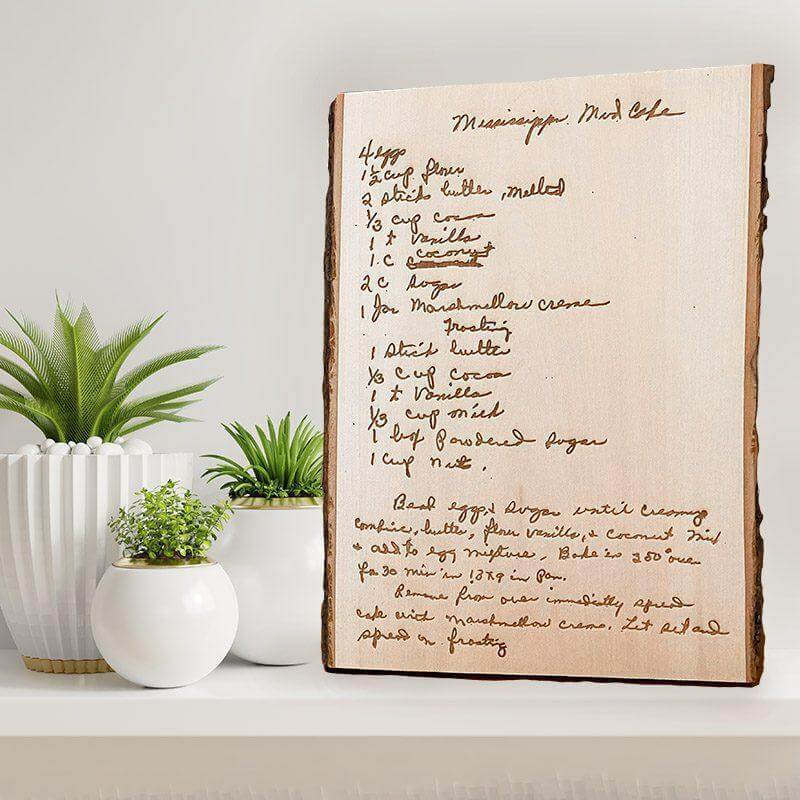 Mississippi Mud Cake
4 eggs
1 1/2 cup flour
2 sticks butter, Melted
1/3 cup cocoa
1 t Vanilla
1 C coconut
2 C Sugar
1 Jar Marshmellow creme
Frosting
1 Stick butter
1/3 cup cocoa
1 t Vanilla
1/3 cup milk
1 box Powdered Sugar
1 cup nuts.
Beat eggs & Sugar until creamy
combine, butter, flour vanilla, & coconut Mix
& add to egg mixture. Bake in 350° oven
for 30 min in 13x9 in Pan.
Remove from oven immediatly spread
cake with Marshmellow creme. Let set and
spread on frosting